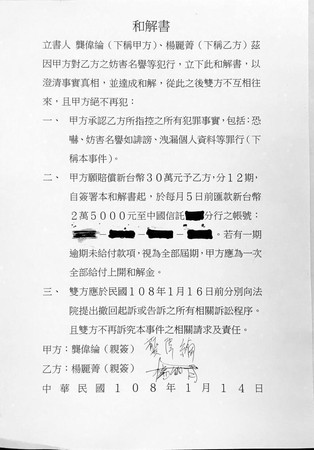 和解書
立書人 龔偉綸（下稱甲方）、楊麗菁（下稱乙方）茲
因甲方對乙方之妨害名譽等犯行，立下此和解書，以
澄清事實真相，並達成和解，從此之後雙方不互相往
來，且甲方絕不再犯：
一、 甲方承認乙方所指控之所有犯罪事實，包括：恐
嚇、妨害名譽如誹謗、洩漏個人資料等罪行（下
稱本事件）。
二、 甲方願賠償新台幣30萬元予乙方，分12期，
自簽署本和解書起，於每月5日前匯款新台幣
2萬5000元至中國信託 分行之帳號：
。若有一期
逾期未給付款項，視為全部屆期，甲方應為一次
全部給付上開和解金。
三、 雙方應於民國108年1月16日前分別向法
院提出撤回起訴或告訴之所有相關訴訟程序。
且雙方不再訴究本事件之相關請求及責任。
甲方：龔偉綸（親簽）
乙方：楊麗菁（親簽）
中華民國108年1月14日